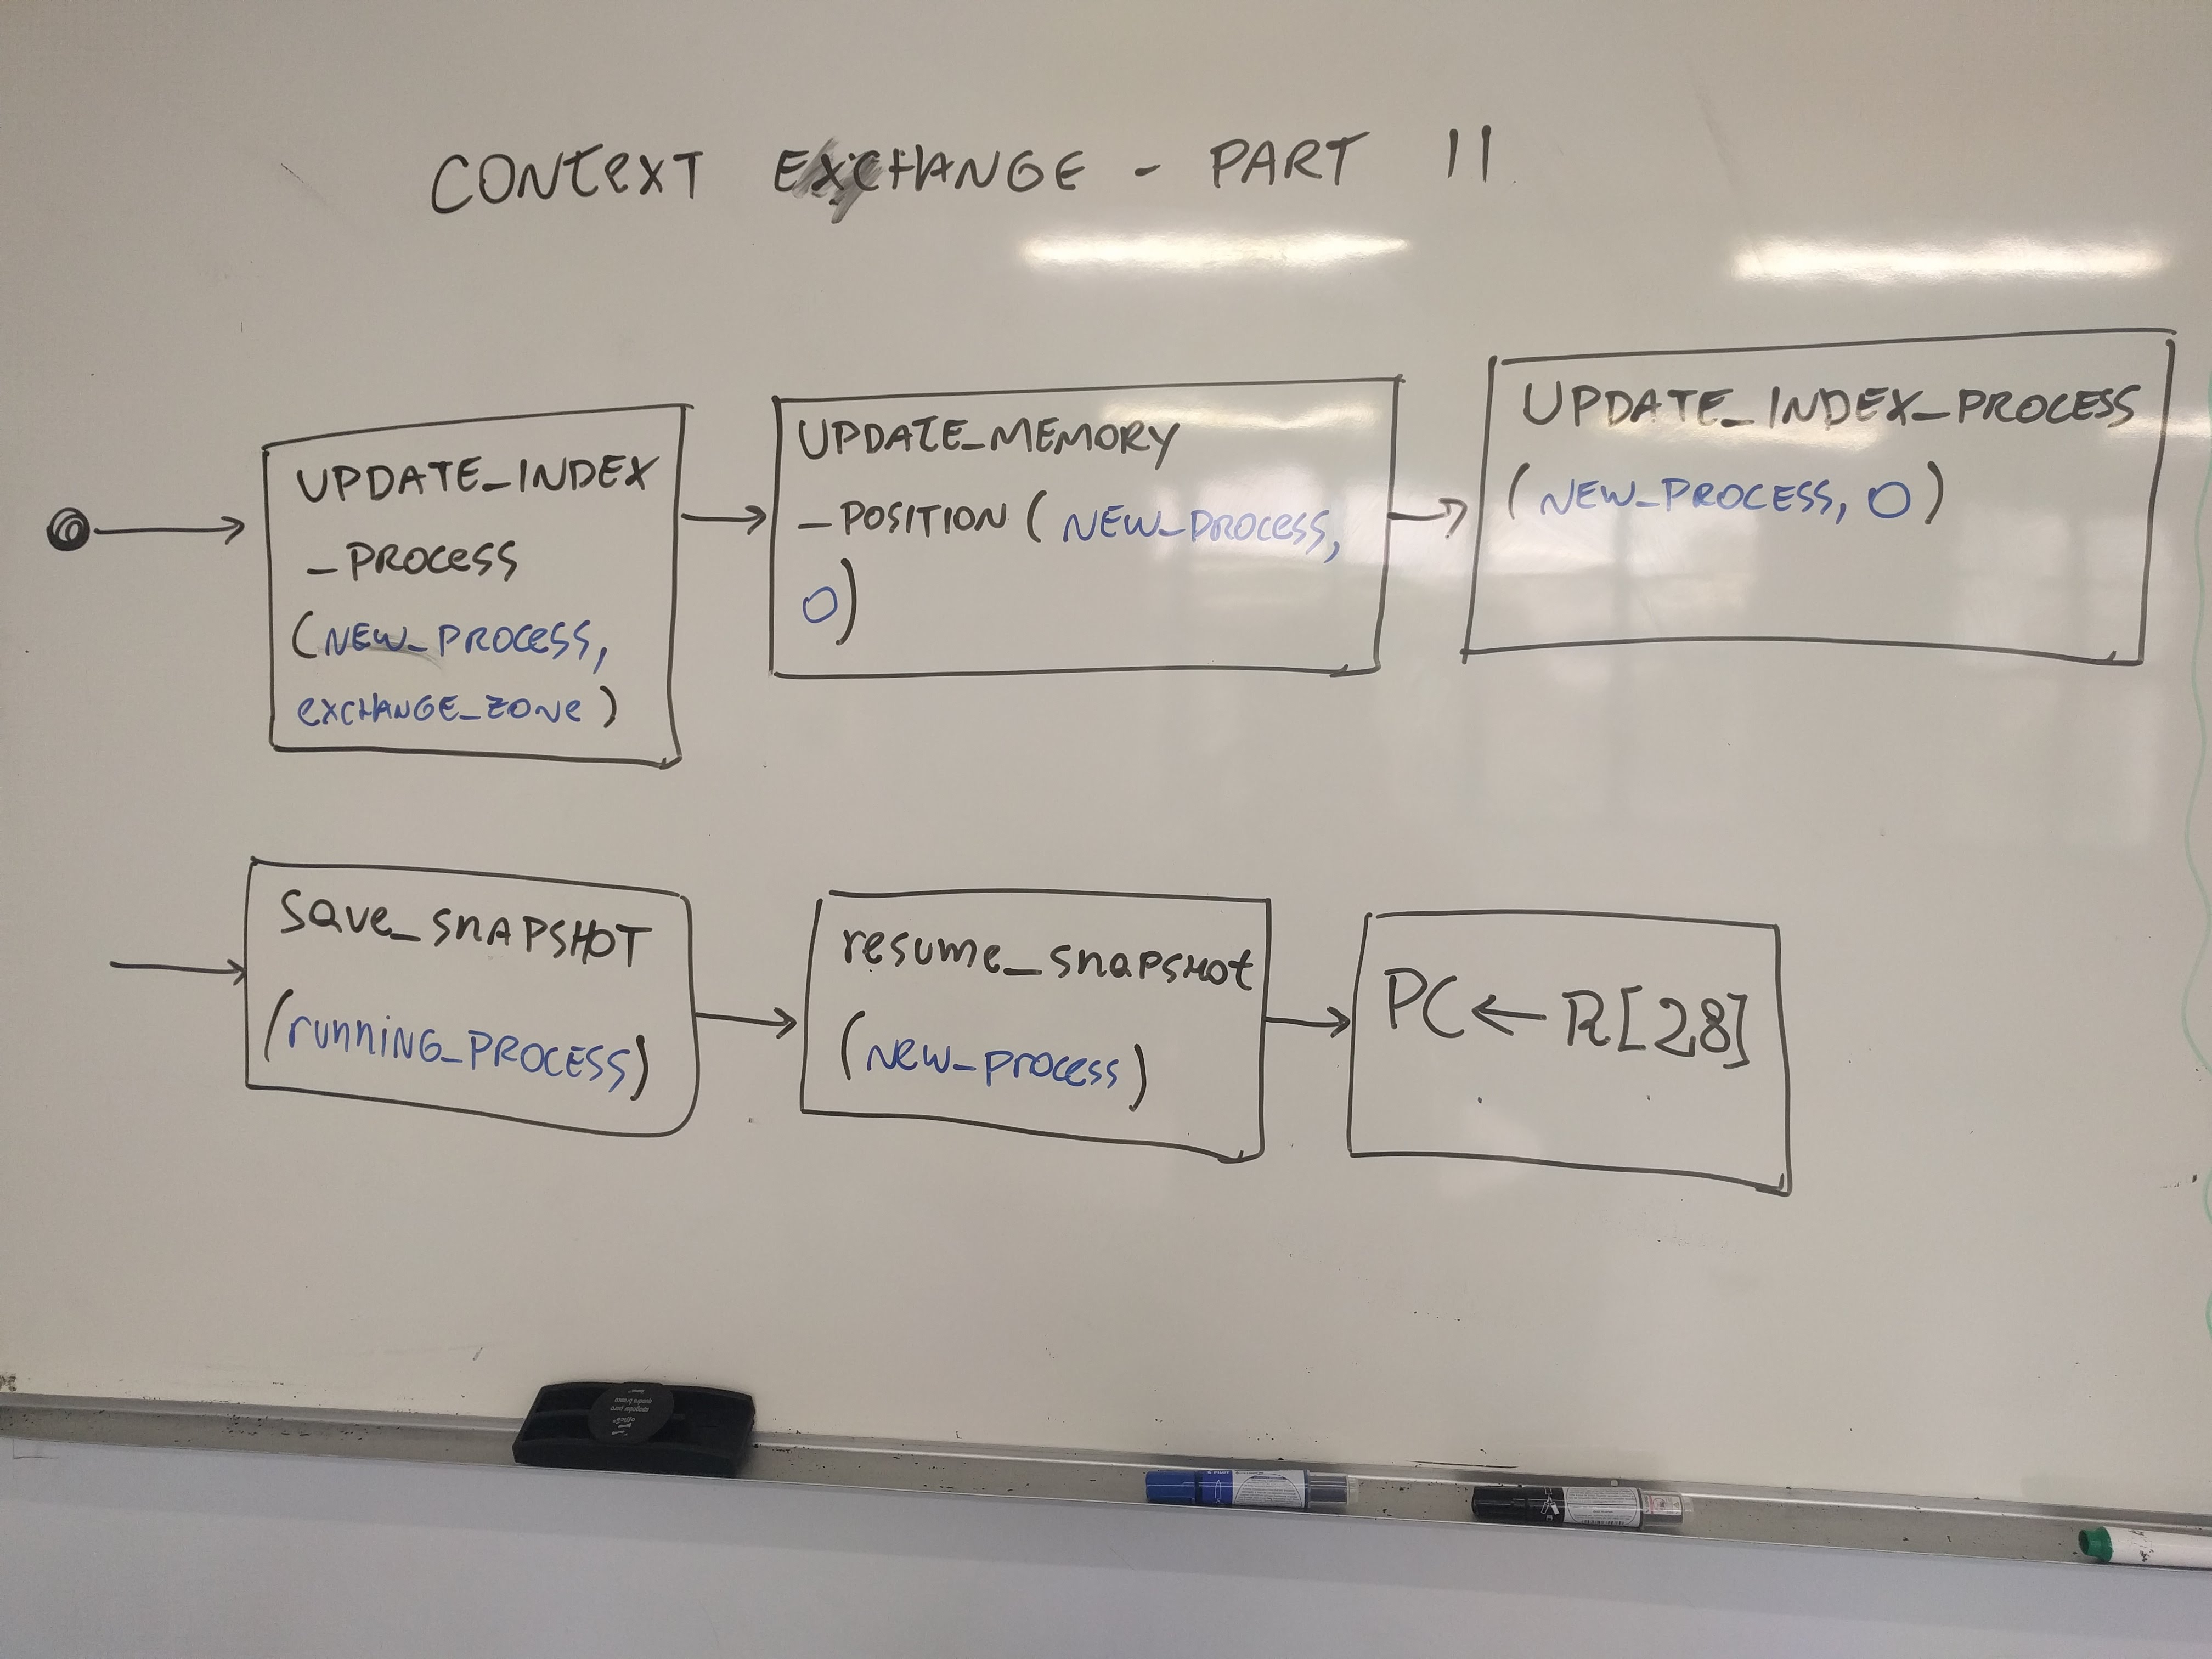 CONTEXT EXCHANGE - PART II
UPDATE_INDEX
_PROCESS
(NEW_PROCESS,
EXCHANGE_ZONE)
UPDATE_MEMORY
_POSITION (NEW_PROCESS,
0)
UPDATE_INDEX_PROCESS
(NEW_PROCESS, 0)
Save_SnAPSHOT
(running_PROCESS)
resume_snapshot
(new_process)
PC ← R[28]